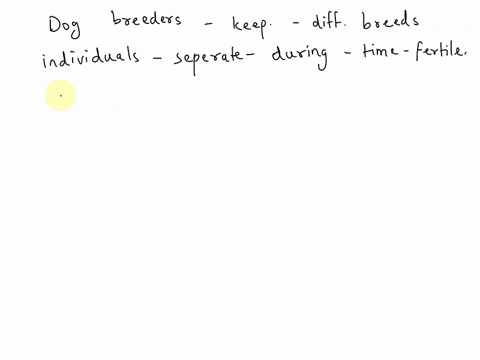 Dog breeders - keep. - diff. breeds
individuals - seperate - during - time - fertile.